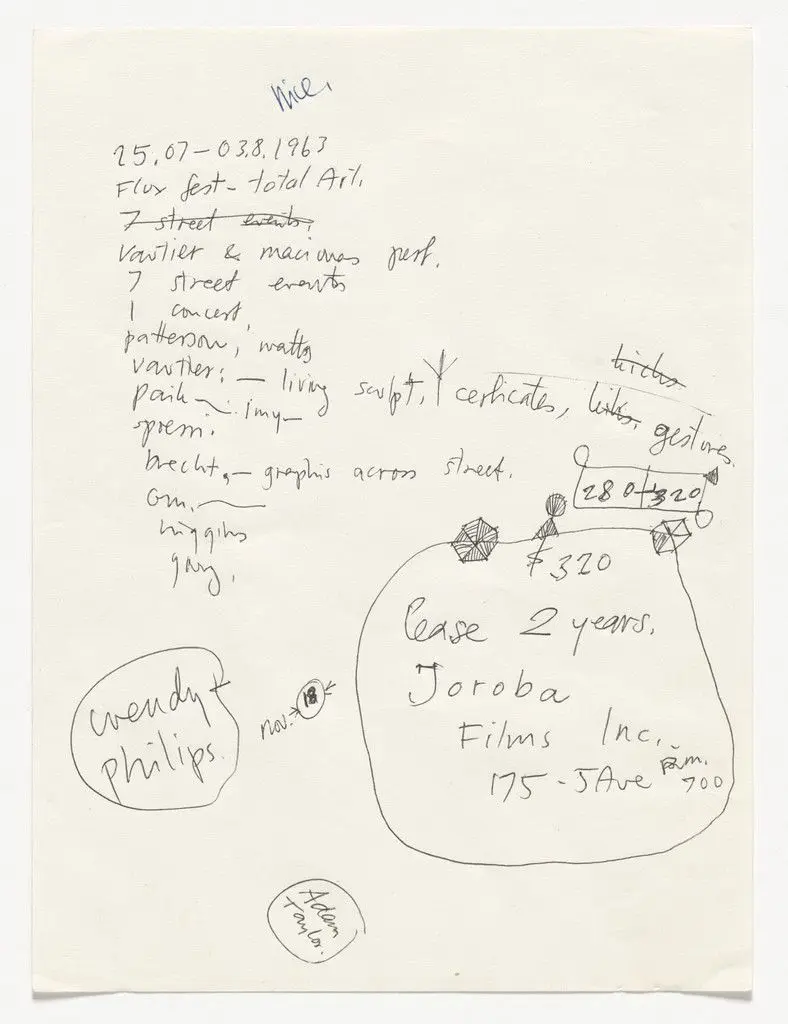 Nice.
25.07–03.8.1963
Flux fest – total Art.
7 street events.
Vautier & maciunas perf.
7 street events
1 concert,
patterson, watts
kicks
vautier: – living sculpt, certicates, kicks, gestures.
paik
spoerri.
brecht, – graphis across street.
280 – 320
higgins
$320
lease 2 years.
Joroba
Films Inc.
175 – 5 Ave rm. 700
wendy +
philips.
nov. 18
Adam
Taylor.